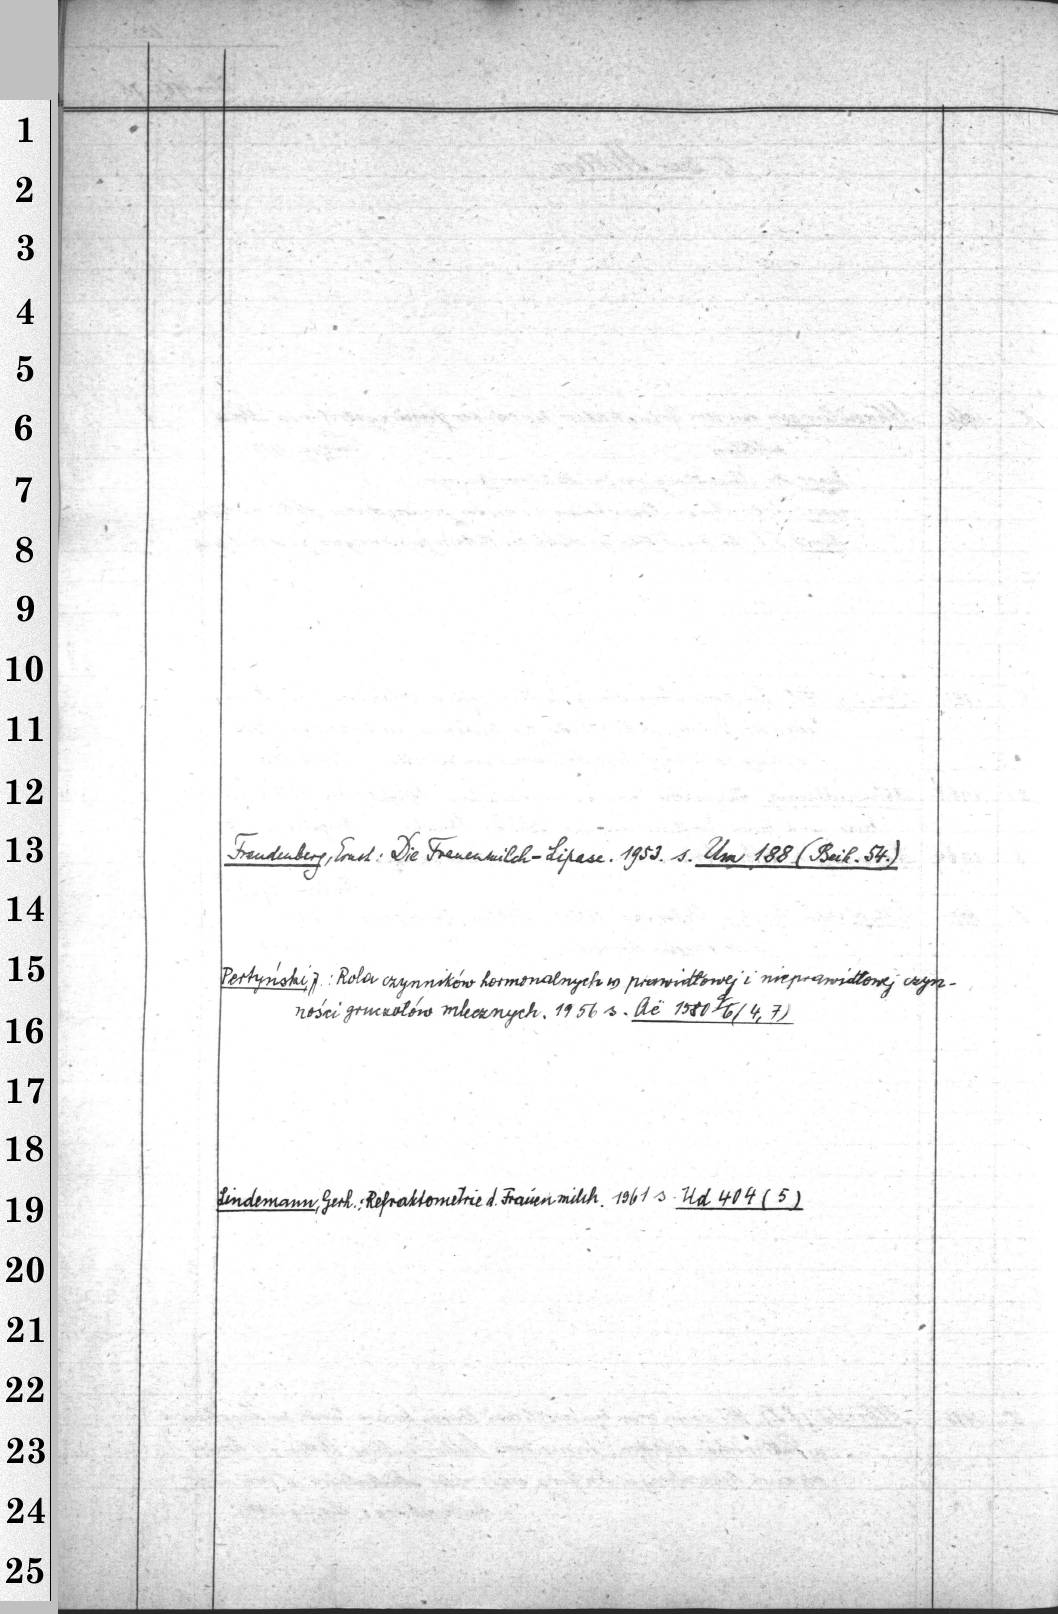 1
2
3
4
5
6
7
8
9
10
11
12
13
Freudenberg, Ernst: Die Frauenmilch-Lipase. 1953. s. Um 188 (Beih. 54.)
14
15
Pertyński, J.: Rola czynników hormonalnych w prawidłowej i nieprawidłowej czyn-
ności gruczołów mlecznych. 1956 s. Aë 1580 /6 (4, 7)
16
17
18
19
Lindemann, Gerh.: Refraktometrie d. Frauenmilch. 1961 s. Ud 404 (5)
20
21
22
23
24
25